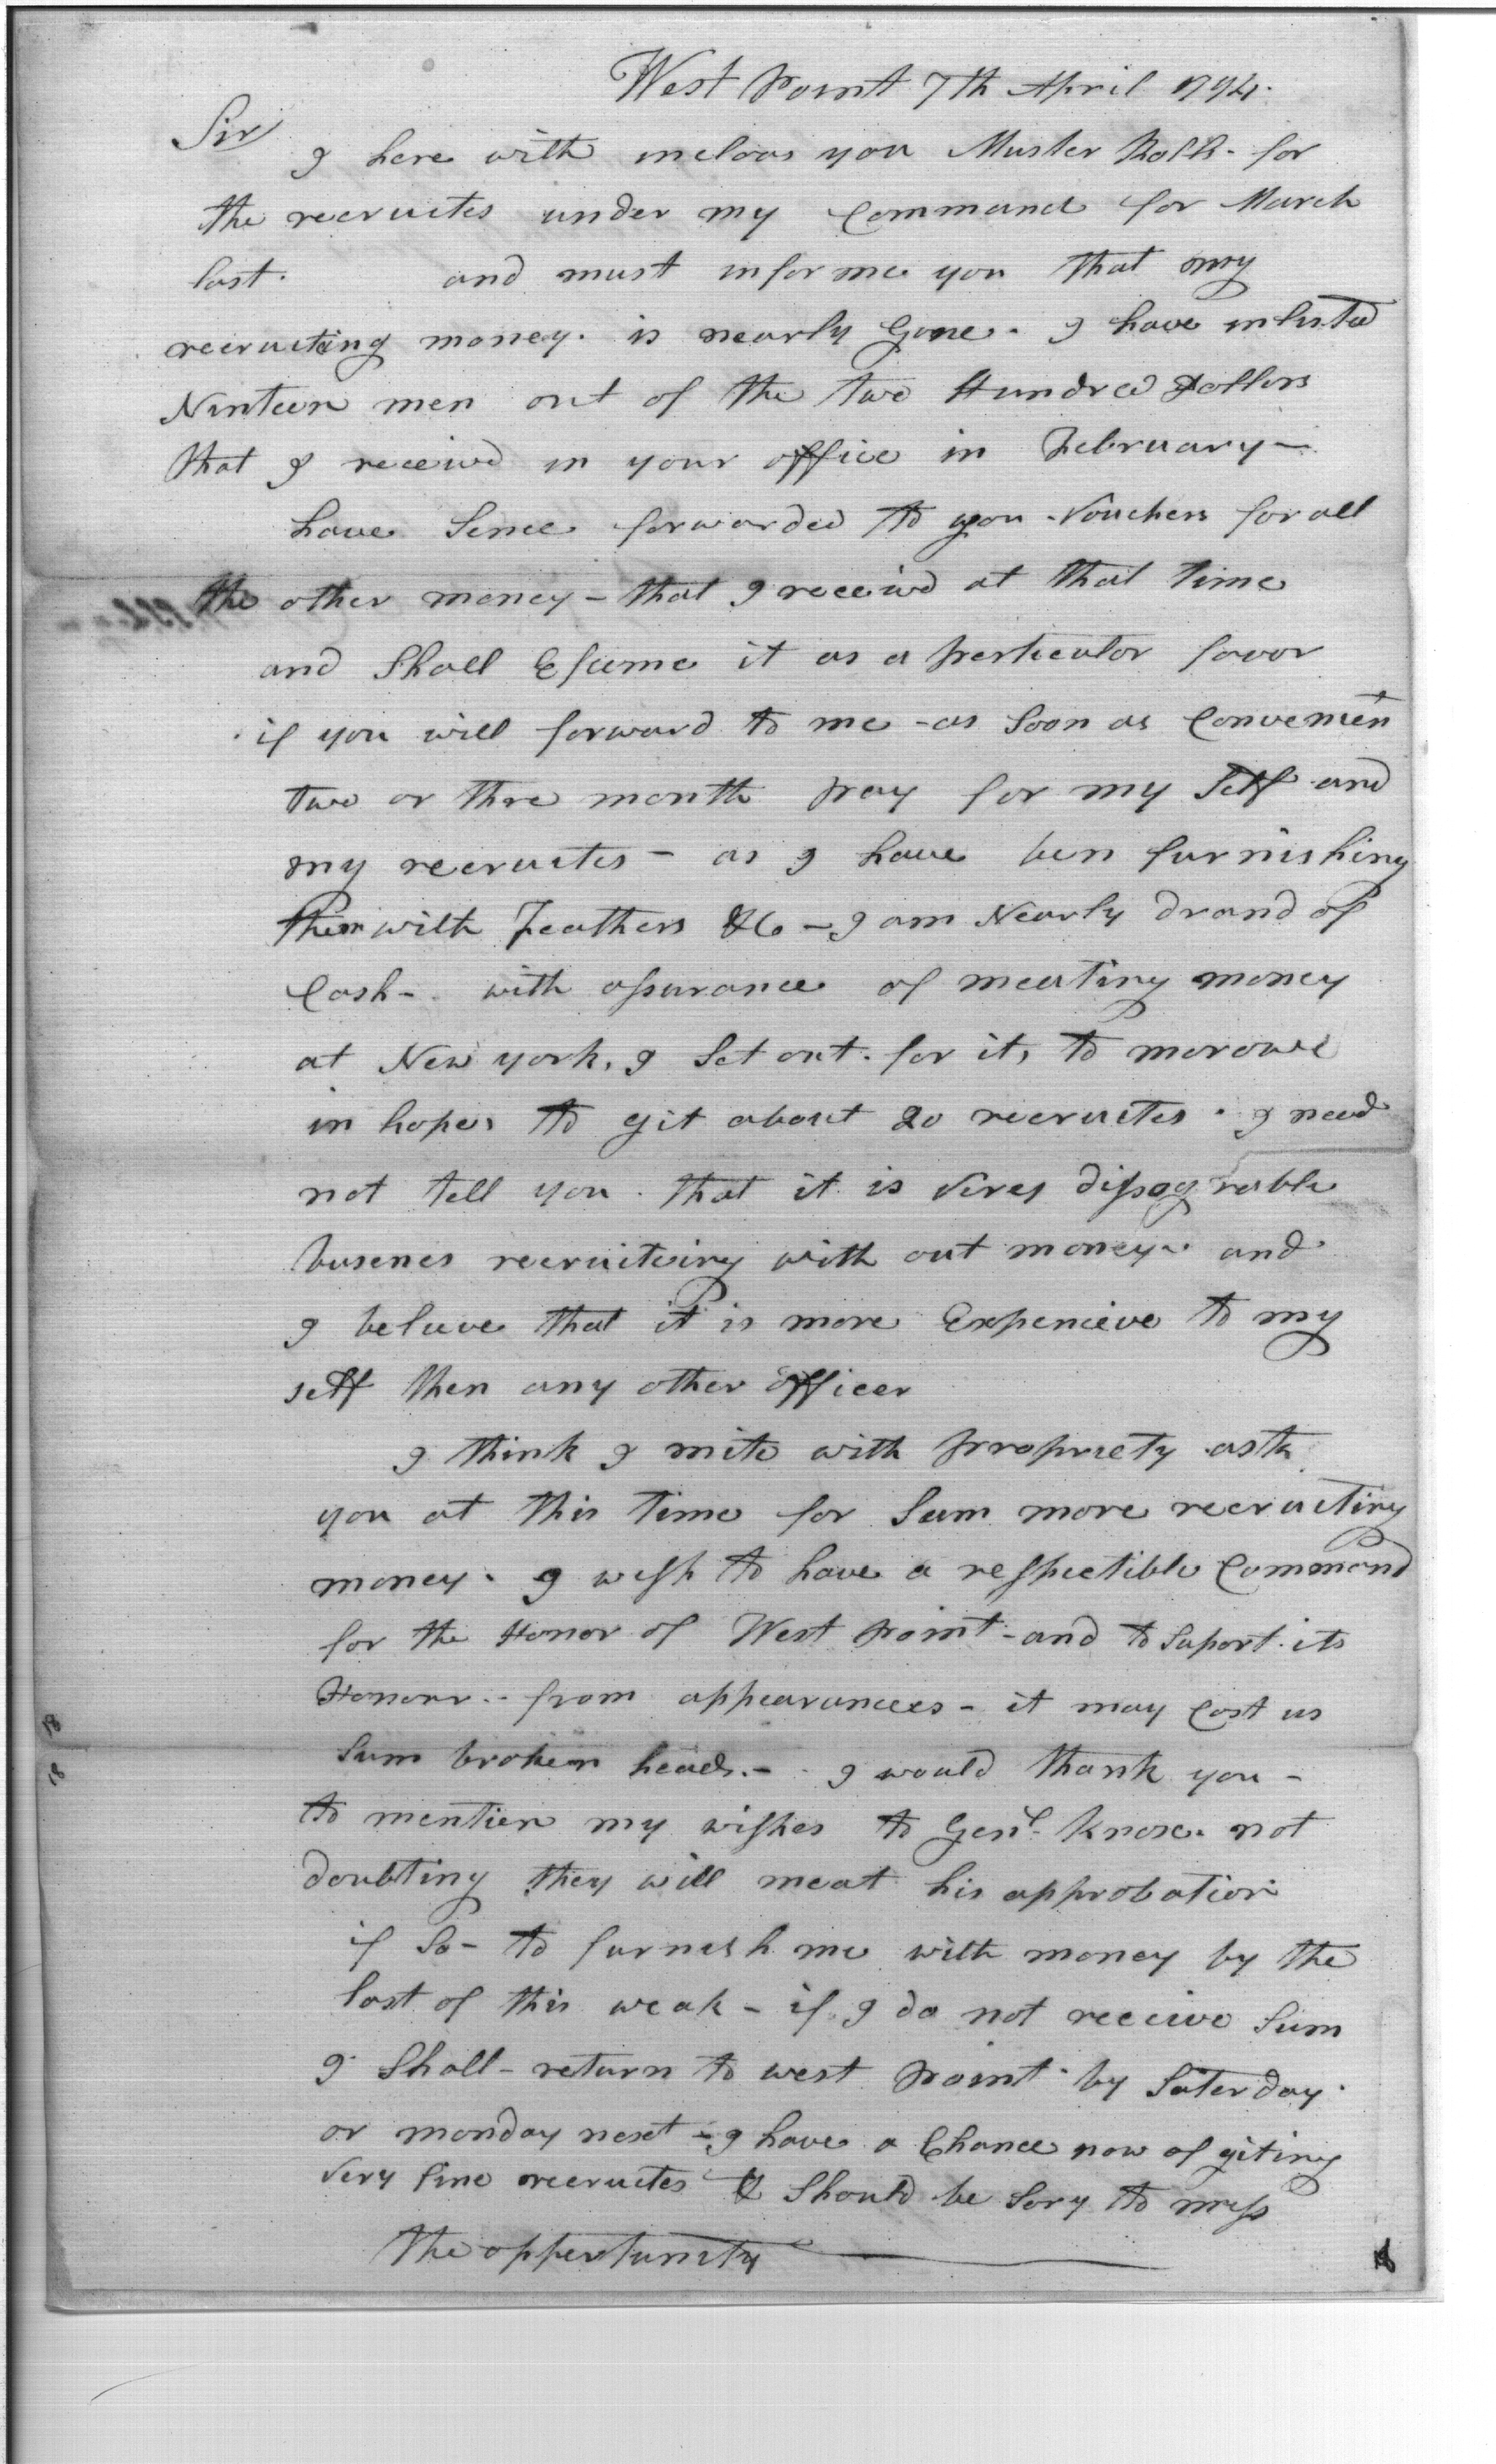 West Point 7th April 1794.
Sir
I here with incloas you Muster Rolls - for
the recruites under my Command for March
last. and must informe you that my
recruiting money. is nearly Gone. I have inlisted
Ninteen men out of the two Hundred Dollors
that I receivd in your office in February -
have Sence forwarded to you - Vouchers for all
the other money - that I receivd at that time
and Shall Esteme it as a perticulor favor
if you will forward to me - as Soon as Convenient
two or thre month pay for my Self and
my recruites - as I have ben furnishing
them with Feathers &c - I am Nearly draind of
Cash - with assurance of meating money
at New york, I Set out. for it, to morowe
in hopes to git about 20 recruites. I need
not tell you. that it is Verey dissagrable
busenes recruiteing with out money. and
I beleive that it is more Expencieve to my
self then any other officer
I think I mite with propriety ask
you at this time for Sum more recruiting
money. I wish to have a respectible Command
for the Honor of West point - and to Suport its
Honour. - from appearances - it may Cost us
Sum broken heads. - I would thank you -
to mention my wishes to Genl. Knox. not
doubting they will meat his approbation
if So - to furnish me with money by the
last of this weak - if I do not receive Sum
I Shall - return to west point by Saterday.
or monday next - I have a Chance now of giting
very fine recruites & Should be Sory to miss
the oppertunity
18
18
18